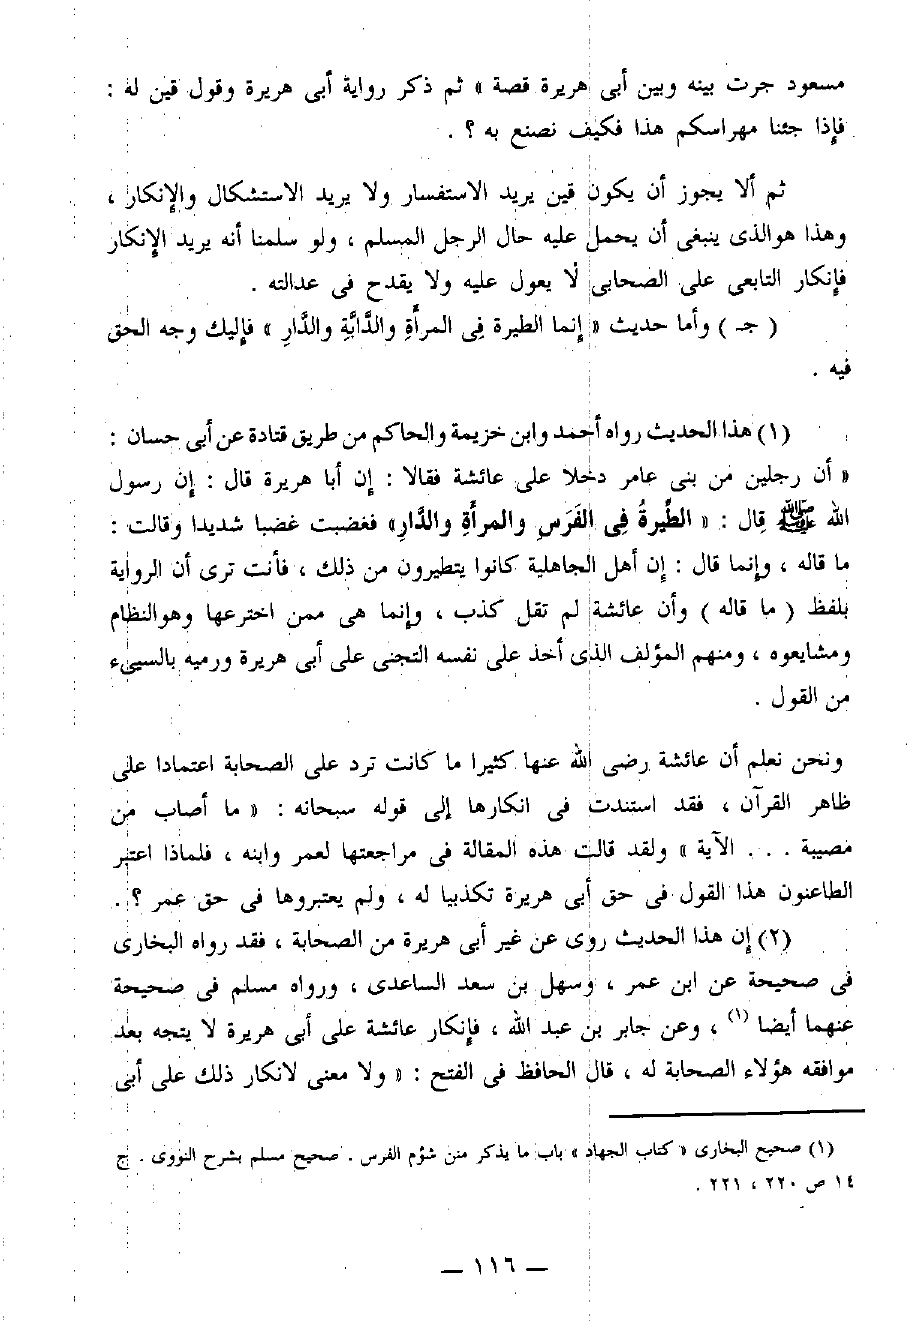 مسعود جرت بينه وبين أبى هريرة قصة » ثم ذكر رواية أبى هريرة وقول قين له :
فإذا جئنا مهراسكم هذا فكيف نصنع به ؟ .
ثم ألا يجوز أن يكون قين يريد الاستفسار ولا يريد الاستشكال والإنكار ،
وهذا هوالذى ينبغى أن يحمل عليه حال الرجل المسلم ، ولو سلمنا أنه يريد الإنكار
فإنكار التابعى على الصحابى لا يعول عليه ولا يقدح فى عدالته .
( جـ ) وأما حديث « إنما الطيرة فِى المرأَةِ والدَّابَّةِ والدَّارِ » فإليك وجه الحق
فيه .
(١) هذا الحديث رواه أحمد وابن خزيمة والحاكم من طريق قتادة عن أبى حسان :
« أن رجلين من بنى عامر دخلا على عائشة فقالا : إن أبا هريرة قال : إن رسول
الله ﷺ قال : « الطِّيرةُ فِى الفَرَسِ والمرأَةِ والدَّارِ» فغضبت غضبا شديدا وقالت :
ما قاله ، وإنما قال : إن أهل الجاهلية كانوا يتطيرون من ذلك ، فأنت ترى أن الرواية
بلفظ ( ما قاله ) وأن عائشة لم تقل كذب ، وإنما هى ممن اخترعها وهوالنظام
ومشايعوه ، ومنهم المؤلف الذى أخذ على نفسه التجنى على أبى هريرة ورميه بالسيىء
من القول .
ونحن نعلم أن عائشة رضى الله عنها كثيرا ما كانت ترد على الصحابة اعتمادا على
ظاهر القرآن ، فقد استندت فى انكارها إلى قوله سبحانه : « ما أصاب من
مصيبة . . . الآية » ولقد قالت هذه المقالة فى مراجعتها لعمر وابنه ، فلماذا اعتبر
الطاعنون هذا القول فى حق أبى هريرة تكذبيا له ، ولم يعتبروها فى حق عمر ؟ .
(٢) إن هذا الحديث روى عن غير أبى هريرة من الصحابة ، فقد رواه البخارى
فى صحيحة عن ابن عمر ، وسهل بن سعد الساعدى ، ورواه مسلم فى صحيحة
عنهما أيضا (١) ، وعن جابر بن عبد الله ، فإنكار عائشة على أبى هريرة لا يتجه بعد
موافقه هؤلاء الصحابة له ، قال الحافظ فى الفتح : « ولا معنى لانكار ذلك على أبى
(١) صحيح البخارى « كتاب الجهاد » باب ما يذكر منن شؤم الفرس . صحيح مسلم بشرح النووى . ج
١٤ ص ٢٢٠ ، ٢٢١ .
— ١١٦ —